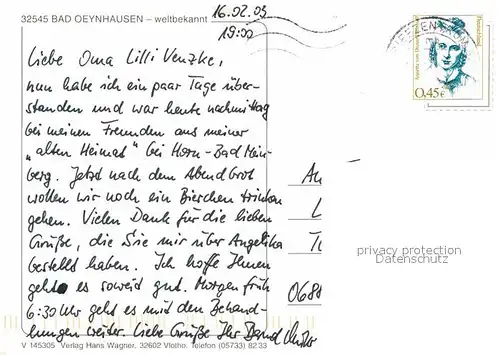 32545 BAD OEYNHAUSEN – weltbekannt
16.02.03
19:00
Liebe Oma Lilli Venzke,
nun habe ich ein paar Tage über-
standen und war heute nachmittag
bei meinen Freunden aus meiner
„alten Heimat" bei Horn-Bad Mein-
berg. Jetzt nach dem Abendbrot
wollen wir noch ein Bierchen trinken
gehen. Vielen Dank für die lieben
Grüße, die Sie mir über Angelika
bestellt haben. Ich hoffe Ihnen
geht es soweit gut. Morgen früh
6:30 Uhr geht es mit den Behand-
lungen weiter. Liebe Grüße Ihr Bernd
V 145305 Verlag Hans Wagner, 32602 Vlotho, Telefon (05733) 82 33
Deutschland
0,45€
An
L
0688
privacy protection
Datenschutz